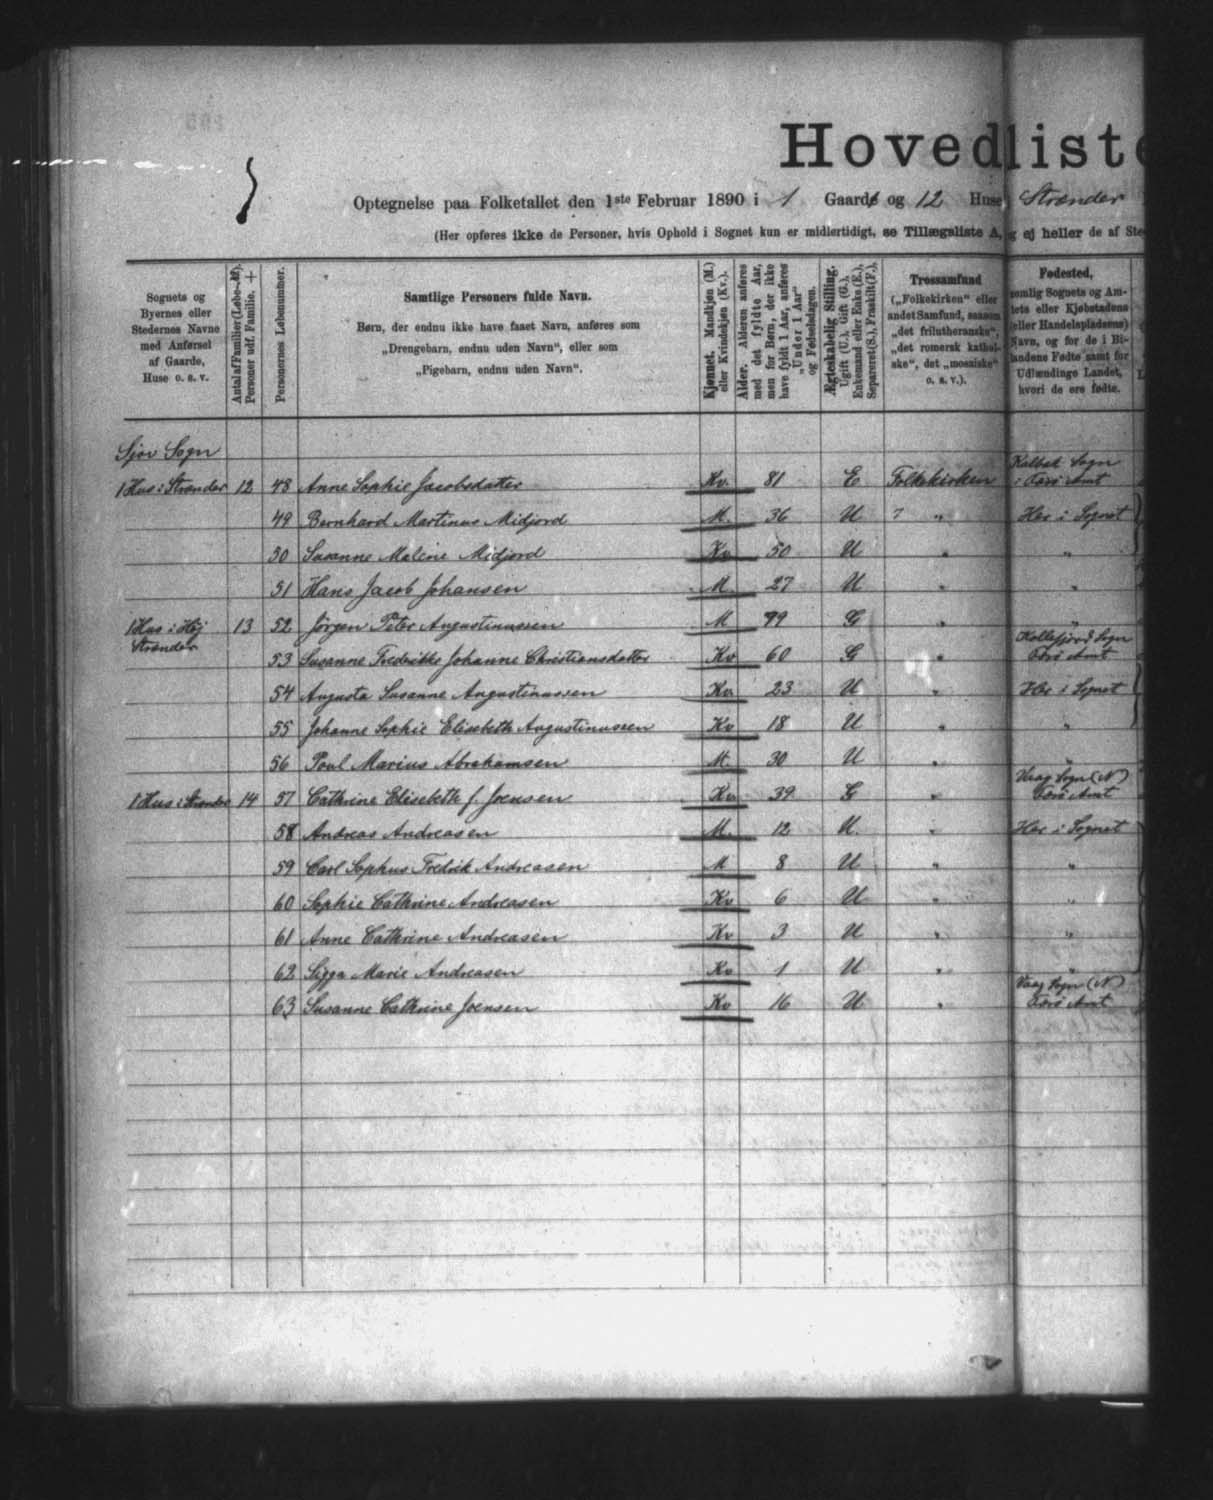 Hovedliste
Optegnelse paa Folketallet den 1ste Februar 1890 i 1 Gaard og 12 Huse Strænder
(Her opføres ikke de Personer, hvis Ophold i Sognet kun er midlertidigt, se Tillægsliste A, og ej heller de af Ste
Sognets og
Byernes eller
Stedernes Navne
med Anførsel
af Gaarde,
Huse o. s. v.
Antal af Familier (Løbe-№).
Personer udf. Familie, +
Personernes Løbenummer.
Samtlige Personers fulde Navn.
Børn, der endnu ikke have faaet Navn, anføres som
„Drengebarn, endnu uden Navn", eller som
„Pigebarn, endnu uden Navn".
Kjønnet. Mandkjøn (M.)
eller Kvindekjøn (Kv.).
Alder. Alderen anføres
med det fyldte Aar,
men for Børn, der ikke
have fyldt 1 Aar, anføres
„Under 1 Aar"
og Fødselsdagen.
Ægteskabelig Stilling.
Ugift (U.), Gift (G.),
Enkemand eller Enke (E.),
Separeret (S.), Fraskilt (F.).
Trossamfund
(„Folkekirken" eller
andet Samfund, saasom
„det frilutheranske",
„det romersk kathol-
ske", det „mosaiske"
o. s. v.).
Fødested,
nemlig Sognets og Am-
tets eller Kjøbstadens
(eller Handelspladsens)
Navn, og for de i Bi-
landene Fødte samt for
Udlændinge Landet,
hvori de ere fødte.
Sjov Sogn
1 Hus i Strænder 12 48 Anne Sophie Jacobsdatter Kv. 81 E Folkekirken Kalbak Sogn
i Færø Amt
49 Bernhard Martinus Midjord M. 36 U " Her i Sognet
50 Susanne Malene Midjord Kv 50 U " "
51 Hans Jacob Johansen M. 27 U " "
1 Hus i Høj 13 52 Jørgen Peter Augustinussen M G " "
Strænder
53 Susanne Fredrikke Johanne Christiansdatter Kv 60 G " Kollefjord Sogn
Færø Amt
54 Augusta Susanne Augustinussen Kv. 23 U " Her i Sognet
55 Johanne Sophie Elisebeth Augustinussen Kv 18 U " "
56 Poul Marius Abrahamsen M. 30 U " "
1 Hus i Strænder 14 57 Cathrine Elisebeth f. Joensen Kv. 39 G " Vaag Sogn (N)
Færø Amt
58 Andreas Andreasen M. 12 U. " Her i Sognet
59 Carl Sophus Fredrik Andreasen M 8 U " "
60 Sophie Cathrine Andreasen Kv 6 U " "
61 Anne Cathrine Andreasen Kv 3 U " "
62 Sigga Marie Andreasen Kv 1 U " "
63 Susanne Cathrine Joensen Kv 16 U " Vaag Sogn (N)
Færø Amt